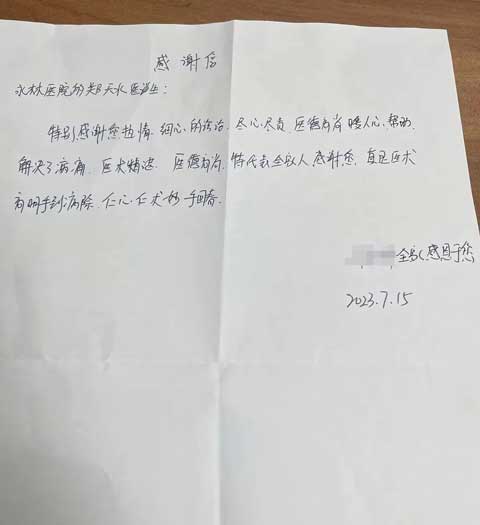 感谢信
水林医院的郑天水医生:
特别感谢您热情、细心的诊治、尽心尽责、医德高尚 暖人心、帮助
解决了病痛、医术精湛、医德高尚、特代表全家人感谢您、真是医术
高明手到病除、仁心仁术妙手回春.
全家感恩于您
2023.7.15